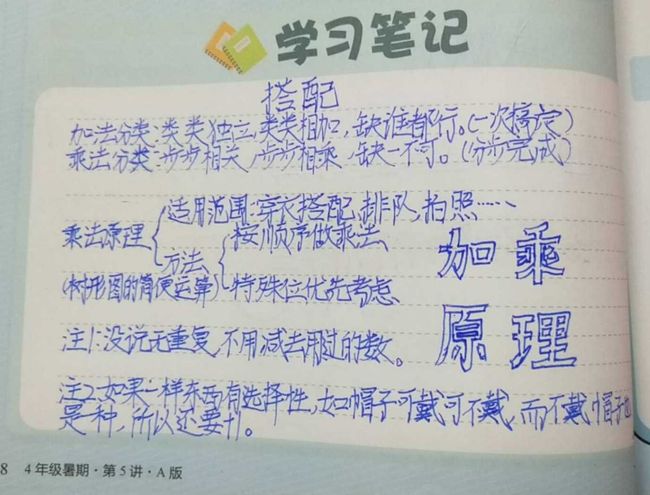 学习笔记
搭配
加法分类:类类独立,类类相加,缺谁都行。(一次搞定)
乘法分类:步步相关,步步相乘,缺一不可。(分步完成)
适用范围:穿衣搭配、排队,拍照……
乘法原理
方法
按顺序做乘法
(树形图的简便运算)
特殊位优先考虑
加乘
原理
注1:没说无重复,不用减去用过的数。
注2:如果一样东西有选择性,如帽子可戴可不戴,而不戴帽子也
是种,所以还要+1。
8 4年级暑期·第5讲·A版